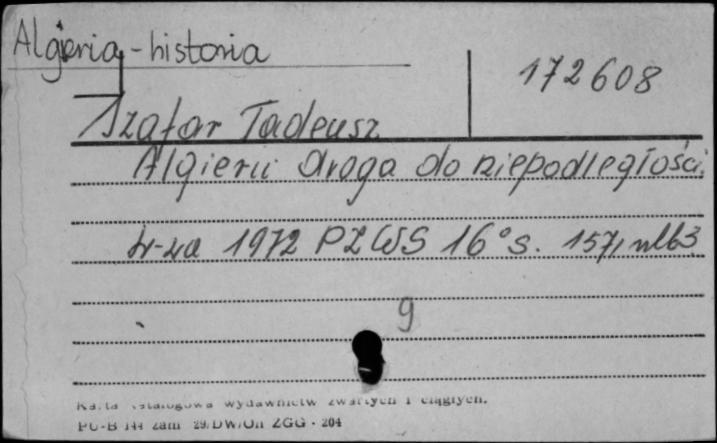 Algieria - historia
172608
Szafar Tadeusz
Algierii droga do niepodległości.
W-wa 1972 PZWS 16° s. 157, nlb 3
9
Karta katalogowa wydawnictw zwartych i ciągłych.
PU-B 144 zam 29/DW/On ZGG - 204